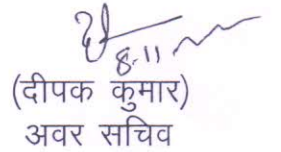 8.11
(दीपक कुमार)
अवर सचिव